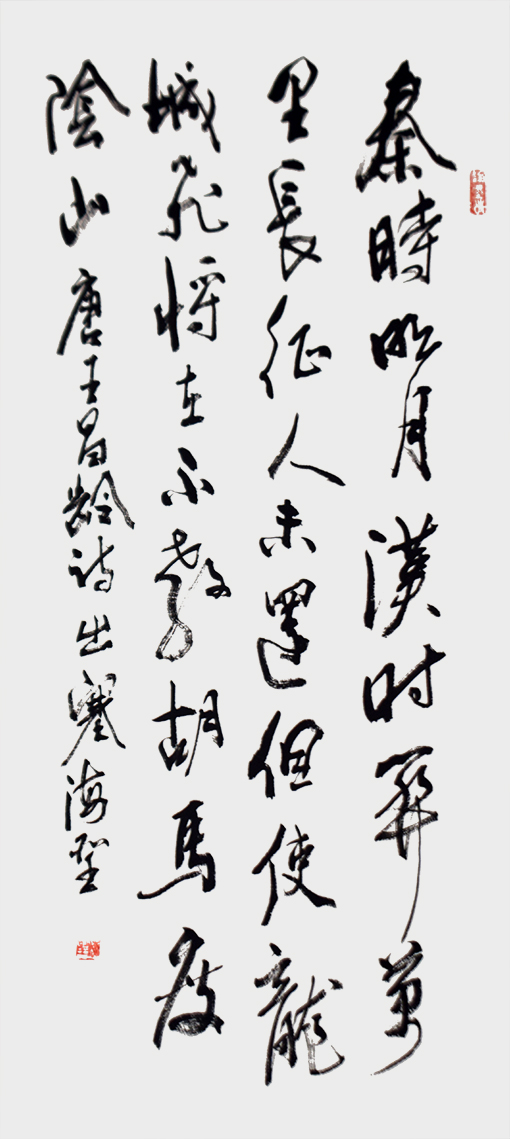 秦時明月漢时関萬
里長征人未還但使龍
城飛将在不教胡馬度
陰山 唐王昌龄诗出塞海聖